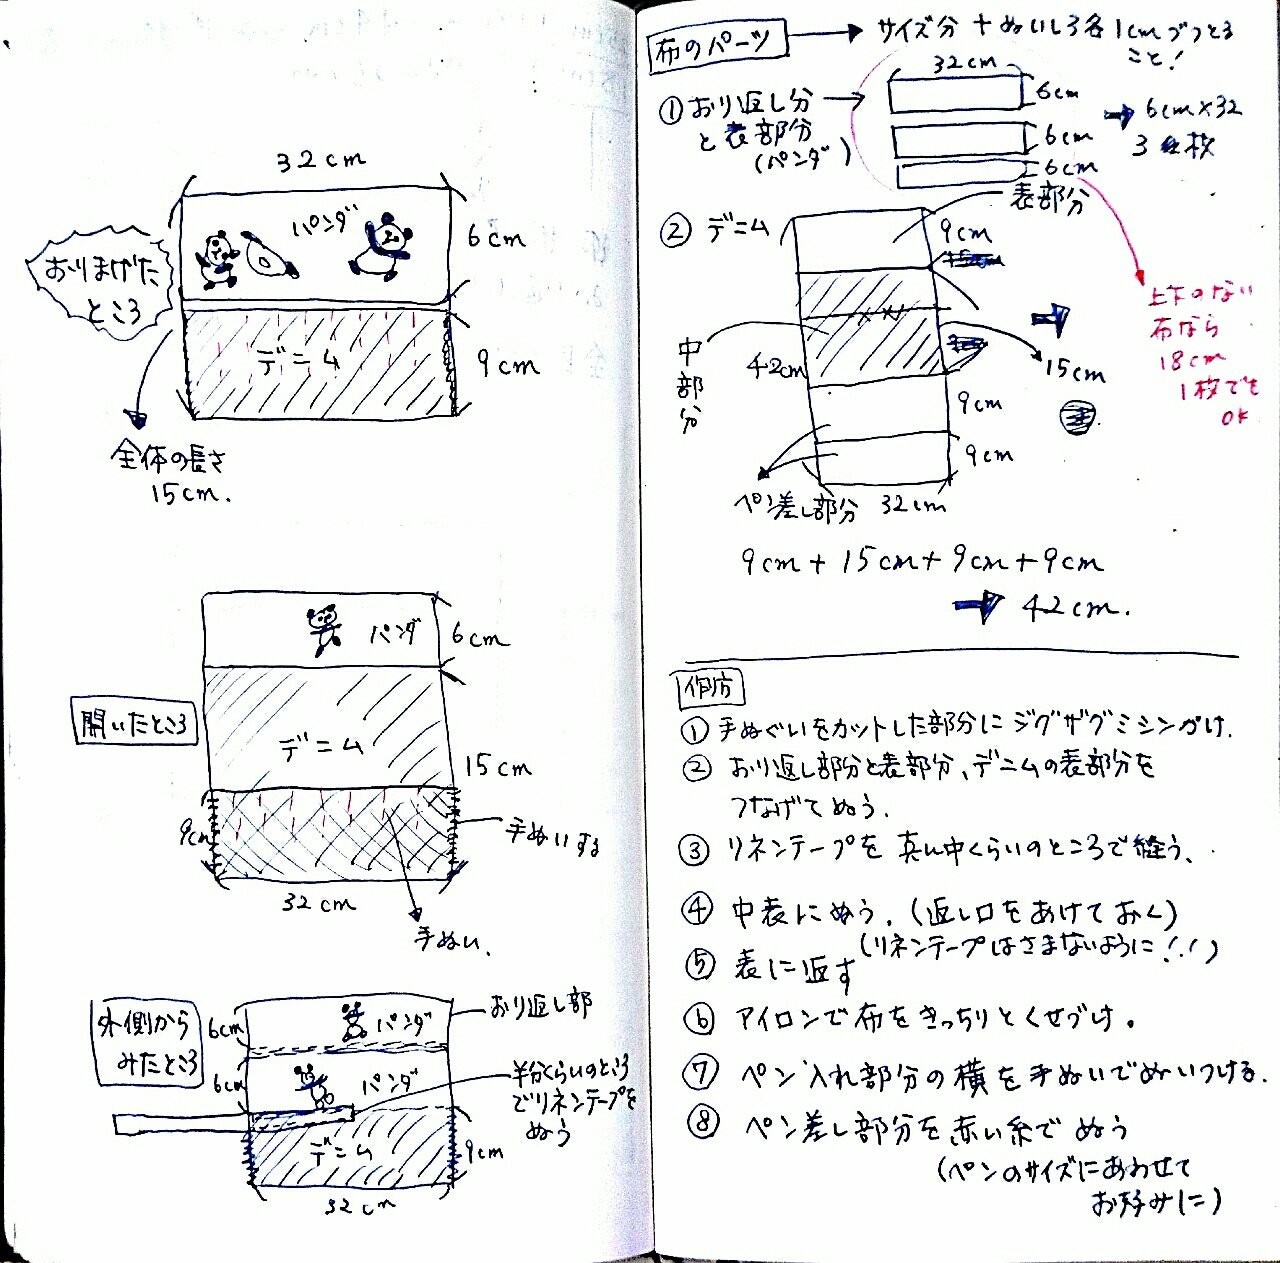 32cm
パンダ
6cm
おりまげた
ところ
デニム
9cm
全体の長さ
15cm.
パンダ
6cm
開いたところ
デニム
15cm
9cm
手ぬいする
32cm
手ぬい.
外側から
みたところ
6cm
パンダ
おり返し部
6cm
パンダ
半分くらいのところ
でリネンテープを
ぬう
デニム
9cm
32cm
布のパーツ
サイズ分 + ぬいしろ各1cmづつとる
こと!
32cm
①おり返し分
と表部分
(パンダ)
6cm
6cm
6cm
6cm×32
3枚
② デニム
表部分
9cm
中部分
42cm
15cm
9cm
9cm
ペン差し部分
32cm
上下のない
布なら
18cm
1枚でも
OK
9cm + 15cm + 9cm + 9cm
42cm.
作方
① 手ぬぐいをカットした部分にジグザグミシンがけ.
② おり返し部分と表部分、デニムの表部分を
つなげてぬう.
③ リネンテープを 真ん中くらいのところで縫う、
④ 中表にぬう. (返し口をあけておく)
(リネンテープはさまないように!!)
⑤ 表に返す
⑥ アイロンで布をきっちりとくせづけ.
⑦ ペン入れ部分の横を手ぬいでぬいつける.
⑧ ペン差し部分を赤い糸でぬう
(ペンのサイズにあわせて
お好みに)